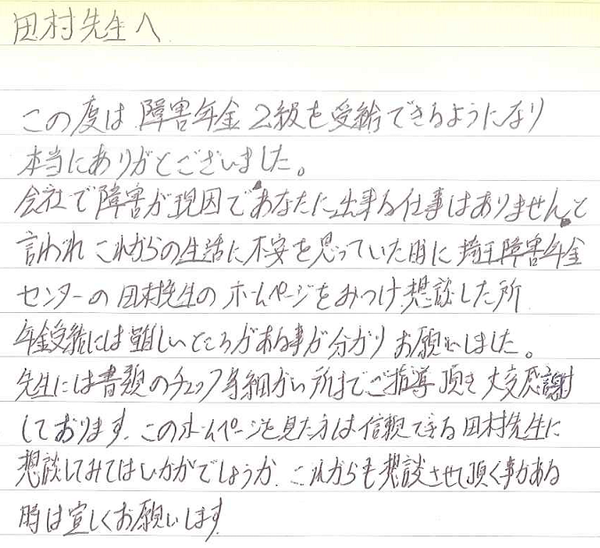 田村先生へ
この度は障害年金2級を受給できるようになり
本当にありがとございました。
会社で障害が現因であなたに出来る仕事はありませんと
言われこれからの生活に不安を思っていた時に埼玉障害年金
センターの田村先生のホームページをみつけ想談した所
年金受給には難しいところがある事が分かりお願いしました。
先生には書題のチェック等細かい所までご指導頂き大変感謝
しております。このホームページを見た方は信頼できる田村先生に
想談してみてはいかがでしょうか。これからも想談させて頂く事がある
時は宜しくお願いします